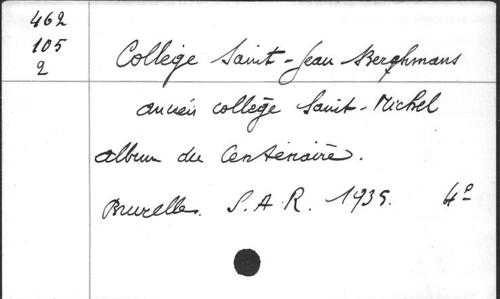 462
105
2
Collège Saint-Jean Berchmans
ancien collège Saint-Michel
album du Centenaire.
Bruxelles. S.A.R. 1935. 4º